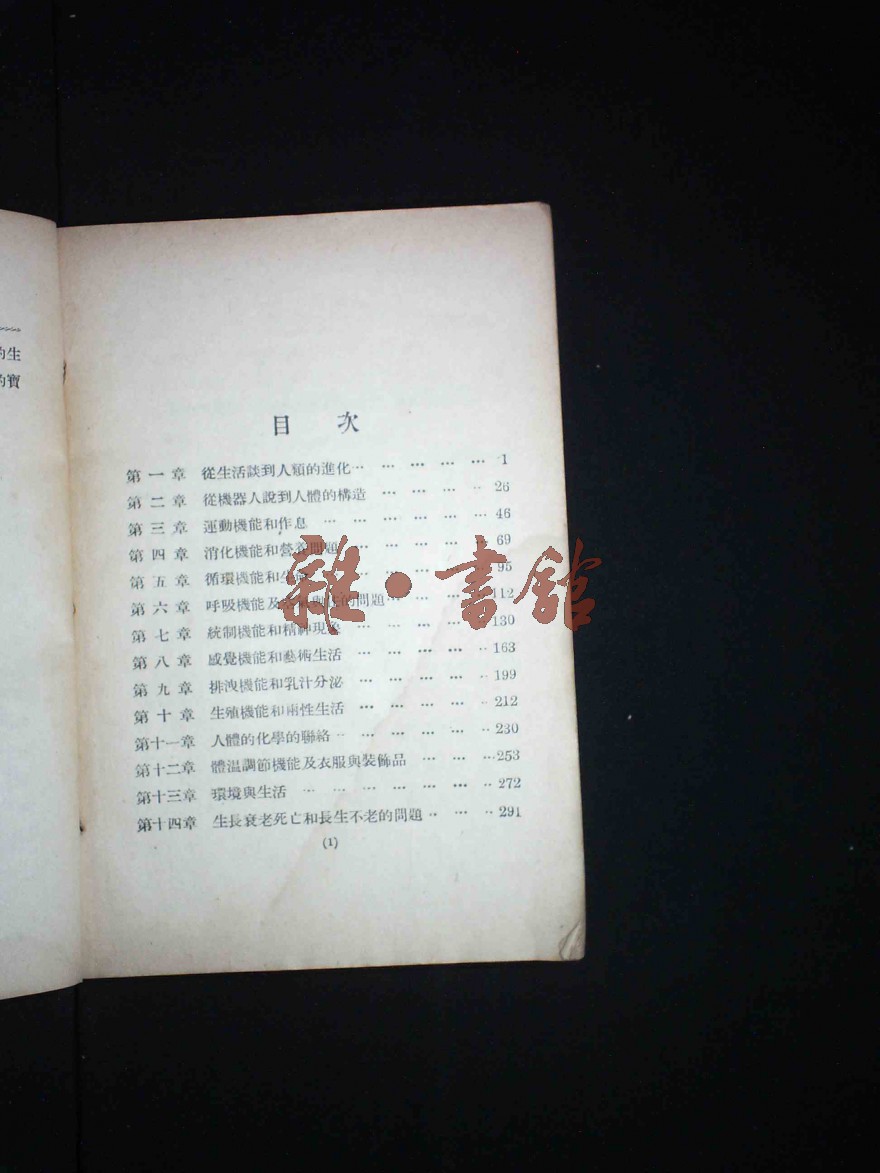 的生
的寶
目 次
第一章 從生活談到人類的進化… … … … … 1
第二章 從機器人說到人體的構造 … … … … 26
第三章 運動機能和作息 … … … … … … … 46
第四章 消化機能和營養問題 … … … … … 69
第五章 循環機能和生 … … … 95
第六章 呼吸機能及 的問題… 112
第七章 統制機能和精神現象 … … … … 130
第八章 感覺機能和藝術生活 … … … … … 163
第九章 排洩機能和乳汁分泌 … … … … … 199
第十章 生殖機能和兩性生活 … … … … … 212
第十一章 人體的化學的聯絡 … … … … … 230
第十二章 體温調節機能及衣服與裝飾品 … … … 253
第十三章 環境與生活 … … … … … … … 272
第十四章 生長衰老死亡和長生不老的問題 … … 291
(1)
雜·書館